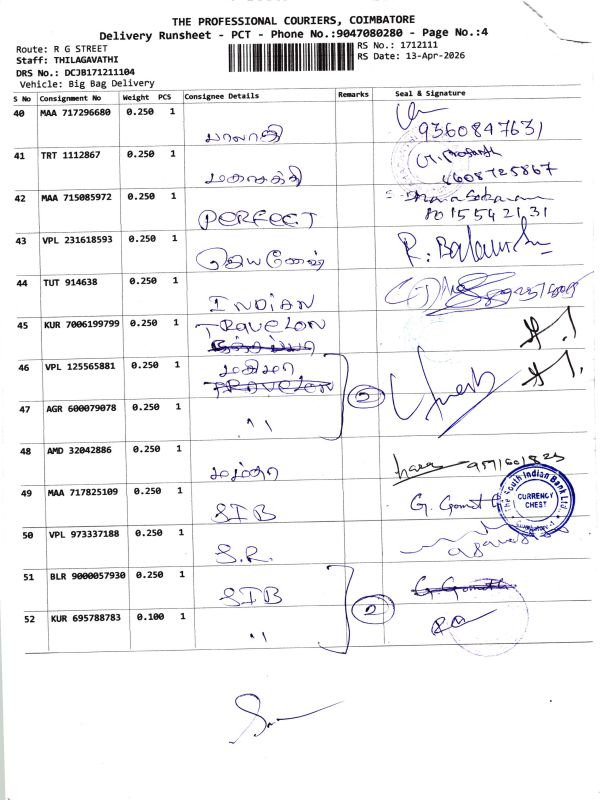 THE PROFESSIONAL COURIERS, COIMBATORE
Delivery Runsheet - PCT - Phone No.:9047080280 - Page No.:4
Route: R G STREET
RS No.: 1712111
Staff: THILAGAVATHI
RS Date: 13-Apr-2026
DRS No.: DCJB171211104
Vehicle: Big Bag Delivery
S No Consignment No Weight PCS Consignee Details Remarks Seal & Signature
40 MAA 717296680 0.250 1 பாலாஜி 9360847631
41 TRT 1112867 0.250 1 மகாசக்தி
42 MAA 715085972 0.250 1 PERFECT 8015542131
43 VPL 231618593 0.250 1
44 TUT 914638 0.250 1 INDIAN
45 KUR 7006199799 0.250 1 TRAVELON
46 VPL 125565881 0.250 1 மகிமா TRAVELON 2
47 AGR 600079078 0.250 1 "
48 AMD 32042886 0.250 1
49 MAA 717825109 0.250 1 SIB The South Indian Bank Ltd CURRENCY CHEST
50 VPL 973337188 0.250 1 S.R.
51 BLR 9000057930 0.250 1 SIB 2
52 KUR 695788783 0.100 1 "